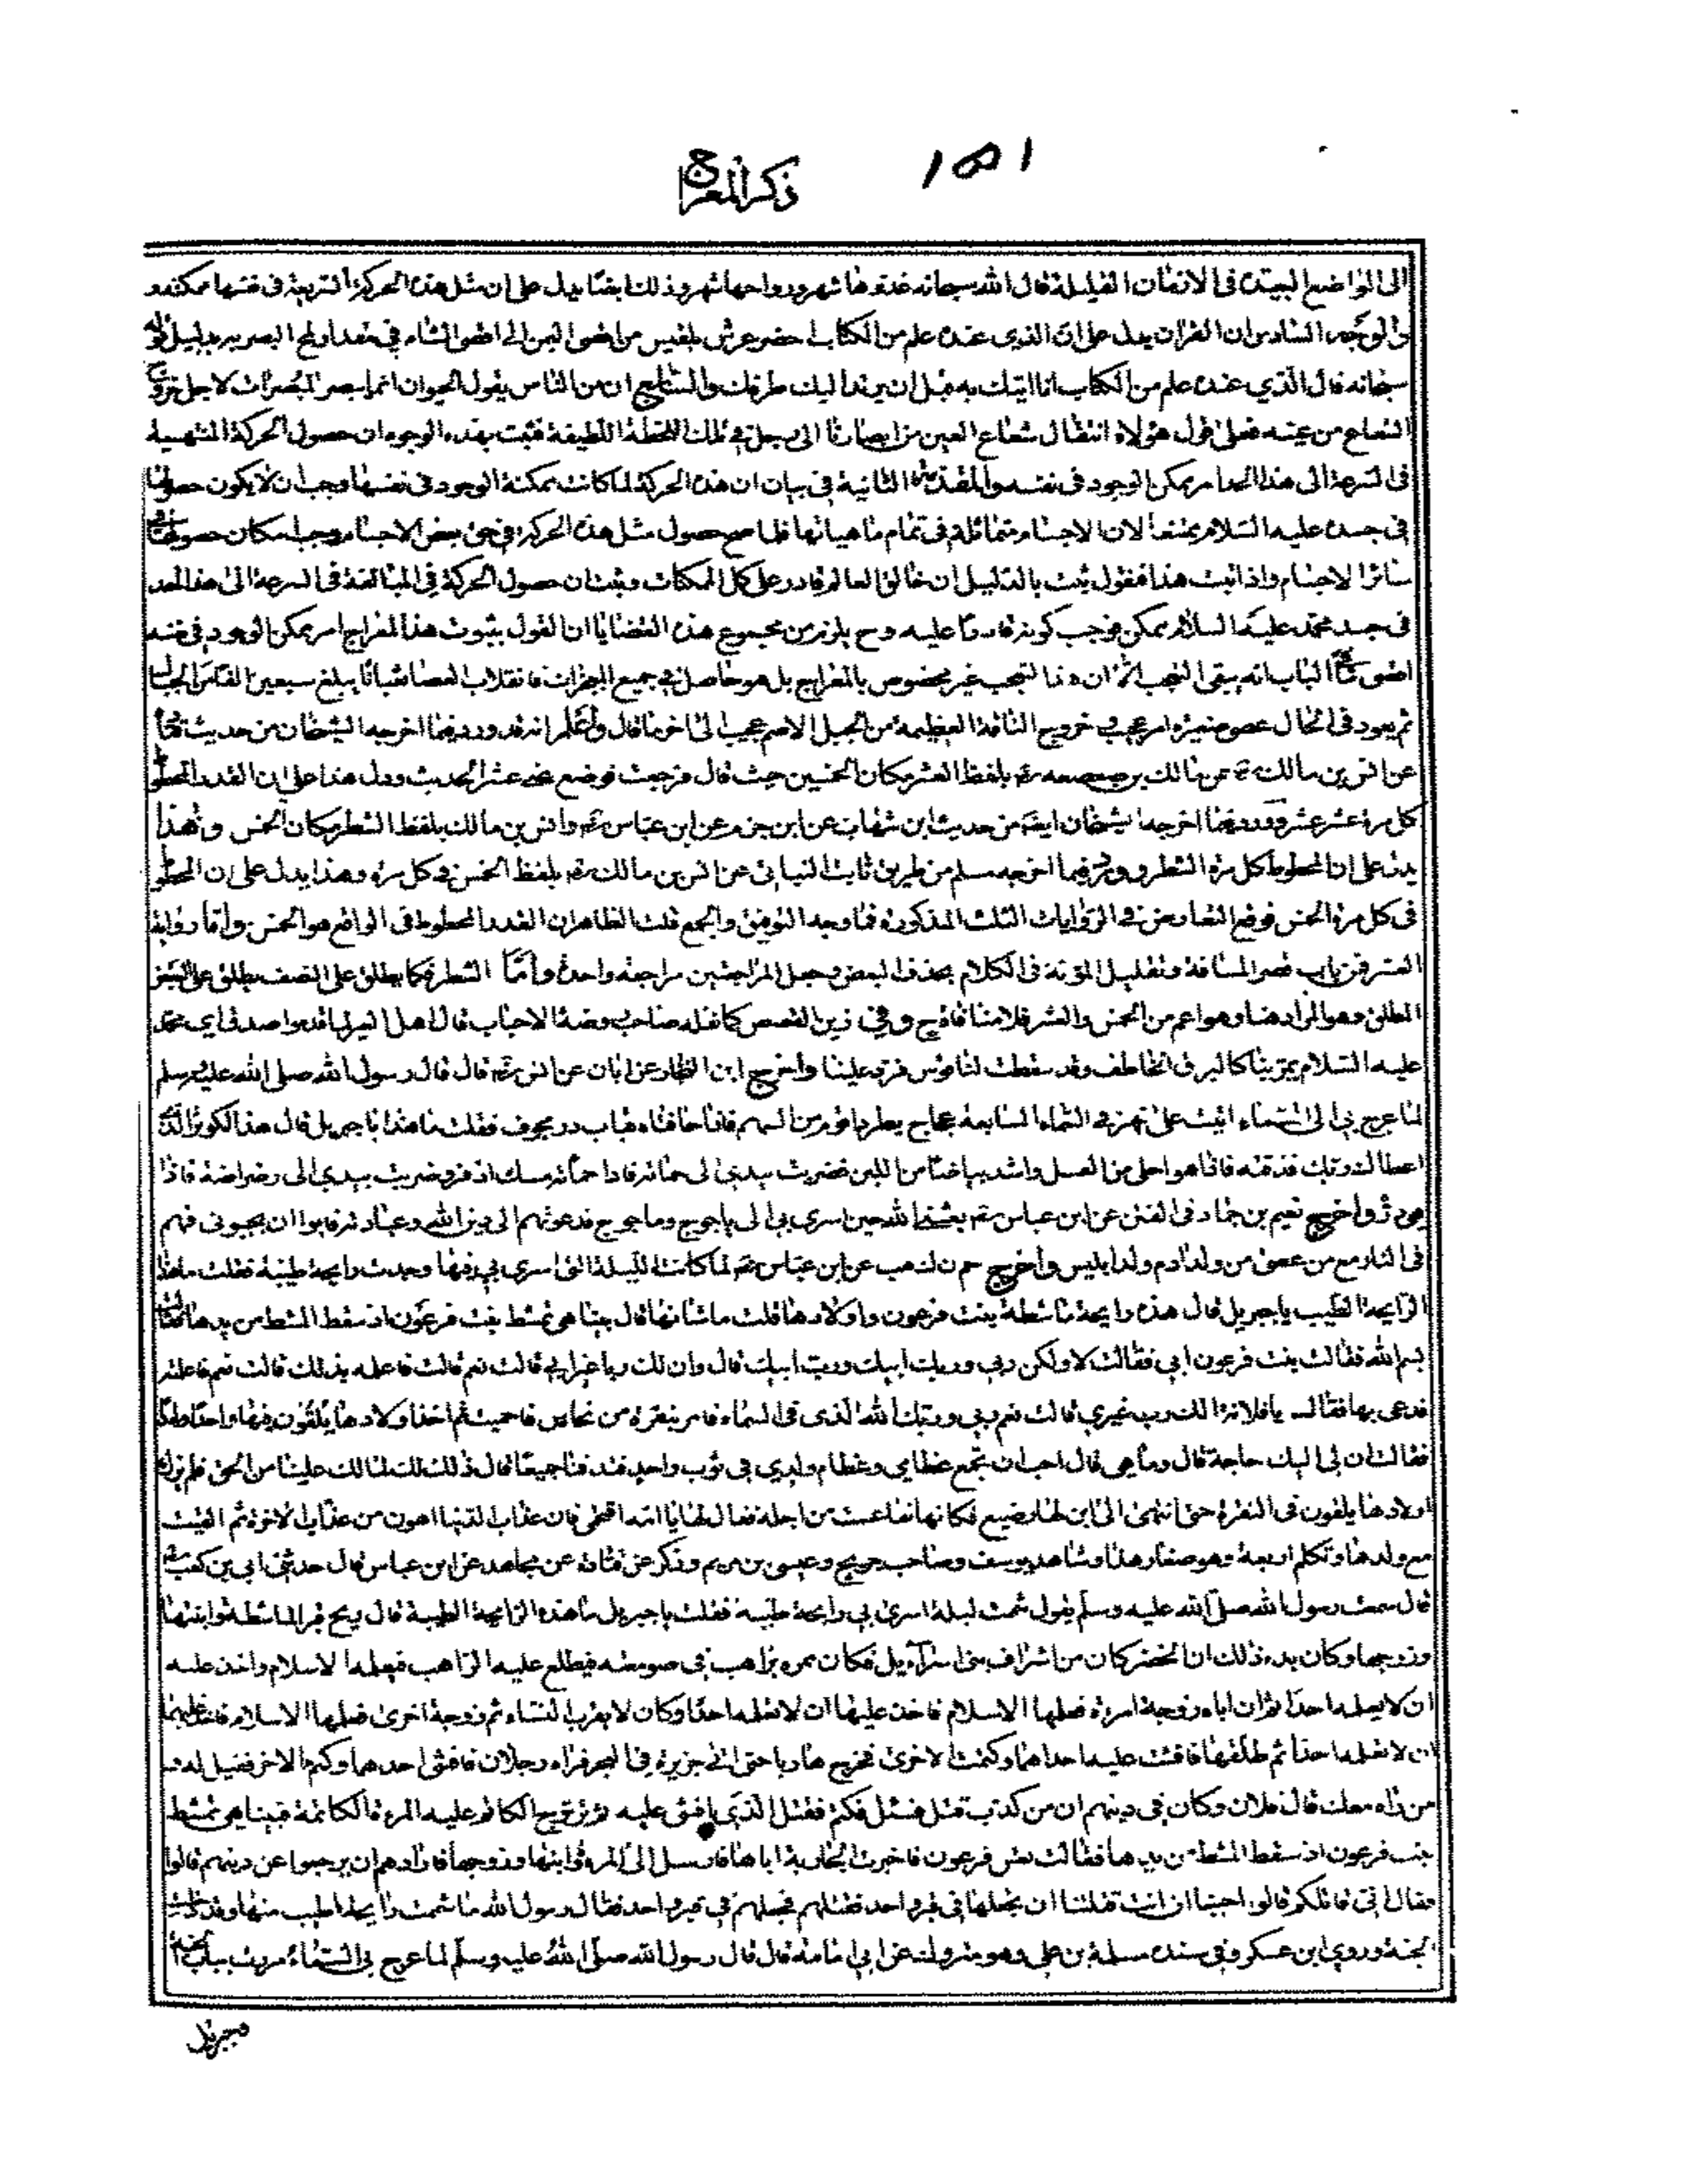 ذكر المعراج
١٥١
الى المواضع البعيدة فى الازمان القليلة قال الله سبحانه غدوها شهر ورواحها شهر وذلك ايضا يدل على ان مثل هذه الحركة السريعة فى نفسها ممكنة و
والوجه السادس ان القران يدل على ان الذى عنده علم من الكتاب احضر عرش بلقيس من اقصى اليمن الى اقصى الشام فى مقدار لمح البصر بدليل قوله
سبحانه قال الذي عنده علم من الكتاب انا اتيك به قبل ان يرتد اليك طرفك والسابع ان من الناس يقول الحيوان انما يبصر المبصرات لاجل خروج
الشعاع من عينه فعلى قول هؤلاء انتقال شعاع العين من ابصارنا الى زحل فى تلك اللحظة اللطيفة فثبت بهذه الوجوه ان حصول الحركة المنتهية
فى السرعة الى هذا الحد امر ممكن الوجود فى نفسه والمقدمة الثانية فى بيان ان هذه الحركة لما كانت ممكنة الوجود فى نفسها وجب ان لا يكون حصولها
فى جسده عليه السلام ممتنعا لان الاجسام متماثلة فى تمام ماهياتها فلما صح حصول مثل هذه الحركة فى حق بعض الاجسام وجب امكان حصولها فى
سائر الاجسام واذا ثبت هذا فنقول ثبت بالدليل ان خالق العالم قادر على كل الممكنات وثبت ان حصول الحركة فى المبالغة فى السرعة الى هذا الحد
فى جسد محمد عليه السلام ممكن فوجب كونه قادرا عليه وح يلزم من مجموع هذه القضايا ان القول بثبوت هذا المعراج امر ممكن الوجود فى نفسه
اقصى ما فى الباب انه يبقى التعجب الا ان هذا التعجب غير مخصوص بالمعراج بل هو حاصل فى جميع المعجزات فانقلاب العصا ثعبانا يبلغ سبعين الفا من الحبال
ثم يعود فى الحال عصى صغيرة امر عجيب خروج الناقة العظيمة من الجبل الاصم عجيب الى اخر ما قال واعلم انه قد ورد فيما اخرجه الشيخان من حديث قتادة
عن انس بن مالك عن مالك بن صعصعه بلفظ العشر مكان الخمسين حيث قال فرجعت فوضع عنى عشرا الحديث ودل هذا على ان القدر المحطوط
كل مرة عشر عشر وورد فيما اخرجه الشيخان ايضا من حديث ابن شهاب عن ابن حزم عن ابن عباس وانس بن مالك بلفظ الشطر مكان الخمس وهذا
يدل على ان المحطوط كل مرة الشطر وورد فيما اخرجه مسلم من طريق ثابت البنانى عن انس بن مالك بلفظ الخمس فى كل مرة وهذا يدل على ان المحطوط
فى كل مرة الخمس فوقع التعارض فى الروايات الثلث المذكورة فما وجه التوفيق والجمع قلت الظاهر ان القدر المحطوط فى الواقع هو الخمس واما رواية
العشر فمن باب قصر المسافة وتقليل المؤنة فى الكلام بحذف البعض وجعل المراجعتين مراجعة واحدة واما الشطر فكما يطلق على النصف يطلق على البعض
المطلق وهو المراد هنا وهو اعم من الخمس والعشر فلا منافاة ح وفى زين القصص كما نقله صاحب روضة الاحباب قال اهل العير لما قدموا صدق ابى محمد
عليه السلام يمر بنا كالبرق الخاطف وقد سقطت لنا قوس فرد علينا واخرج ابن النجار عن ابان عن انس قال قال رسول الله صلى الله عليه وسلم
لما عرج بى الى السماء اتيت على نهر فى السماء السابعة عجاج يطرد اقوم من السهم فاذا حافتاه قباب در مجوف فقلت ما هذا يا جبريل قال هذا الكوثر الذى
اعطاك ربك فذقته فاذا هو احلى من العسل واشد بياضا من اللبن فضربت بيدى الى حمأته فاذا حمأته مسك اذفر وضربت بيدى الى رضراضة فاذا
هى در واخرج نعيم بن حماد فى الفتن عن ابن عباس بعثنى الله حين اسرى بى الى ياجوج وماجوج فدعوتهم الى دين الله وعبادته فابوا ان يجيبونى فهم
فى النار مع من عصى من ولد ادم وولد ابليس واخرج عن ابن عباس لما كانت الليلة التى اسرى بى فيها وجدت رايحة طيبة فقلت ما هذه
الرايحة الطيب يا جبريل قال هذه رايحة ماشطة بنت فرعون واولادها قلت ما شانها قال بينا هى تمشط بنت فرعون اذ سقط المشط من يدها فقالت
بسم الله فقالت بنت فرعون ابى فقالت لا ولكن ربى وربك ورب ابيك قال وان لك ربا غير ابى قالت نعم قالت فاعلمه بذلك قالت نعم فاعلمته
فدعى بها فقال يا فلانة الك رب غيرى قالت نعم ربى وربك الله الذى فى السماء فامر بنقرة من نحاس فاحميت ثم اخذ اولادها يلقون فيها واحدا واحدا
فقالت ان لى اليك حاجة قال وما هى قال احب ان تجمع عظامى وعظام ولدى فى ثوب واحد فتدفنا جميعا قال ذلك لك لما لك علينا من الحق فلم يزل
اولادها يلقون فى النقرة حتى انتهى الى ابن لها رضيع فكانها تقاعست من اجله فقال لها يا امه اقتحمى فان عذاب الدنيا اهون من عذاب الاخرة ثم القيت
مع ولدها وتكلم اربعة وهو صغار هذا وشاهد يوسف وصاحب جريج وعيسى بن مريم وذكر عن قتادة عن مجاهد عن ابن عباس قال حدثنى ابى بن كعب
قال سمعت رسول الله صلى الله عليه وسلم يقول شممت ليلة اسرى بى رايحة طيبة فقلت يا جبريل ما هذه الرايحة الطيبة قال ريح قبر الماشطة وابنتها
وزوجها وكان بدء ذلك ان الخضر كان من اشراف بنى اسرآءيل فكان ممره براهب فى صومعته فيطلع عليه الراهب فيعلمه الاسلام واخذ عليه
ان لا يعلمه احدا ثم ان اباه زوجه امرءة فعلمها الاسلام فاخذ عليها ان لا تعلمه احدا وكان لا يقرب النساء ثم زوجه اخرى فعلمها الاسلام فاخذ عليها
ان لا تعلمه احدا ثم طلقها فافشت عليه احداهما وكتمت الاخرى فخرج هاربا حتى اتى جزيرة فى البحر فراه رجلان فافشى احدهما وكتم الاخر فقيل له و
من راه معك قال فلان وكان فى دينهم ان من كذب قتل فسئل فكتم فقتل الذى افشى عليه ثم تزوج الكاتم عليه المرءة الكاتمة فبينا هى تمشط
بنت فرعون اذ سقط المشط من يدها فقالت تعس فرعون فاخبرت الجارية اباها فارسل الى المرءة وابنها وزوجها فارادهم ان يرجعوا عن دينهم فابوا
فقال انى قاتلكم قالوا احببنا ان انت قتلتنا ان تجعلنا فى قبر واحد فقتلهم فجعلهم فى قبر واحد فقال رسول الله ما شممت رايحة اطيب منها وقد دخلت
الجنة وروى ابن عسكر وفى سنده مسلمة بن على وهو متروك عن ابى امامة قال قال رسول الله صلى الله عليه وسلم لما عرج بى السماء مررت بباب الجنة
وجبريل